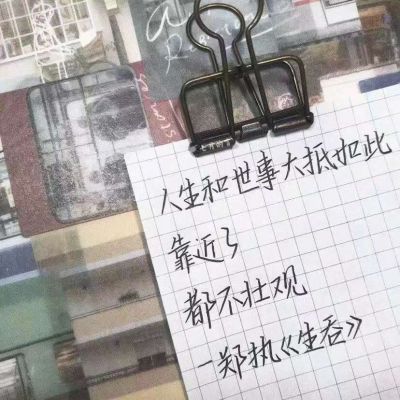 人生和世事大抵如此
靠近了
都不壮观
—郑执《生吞》